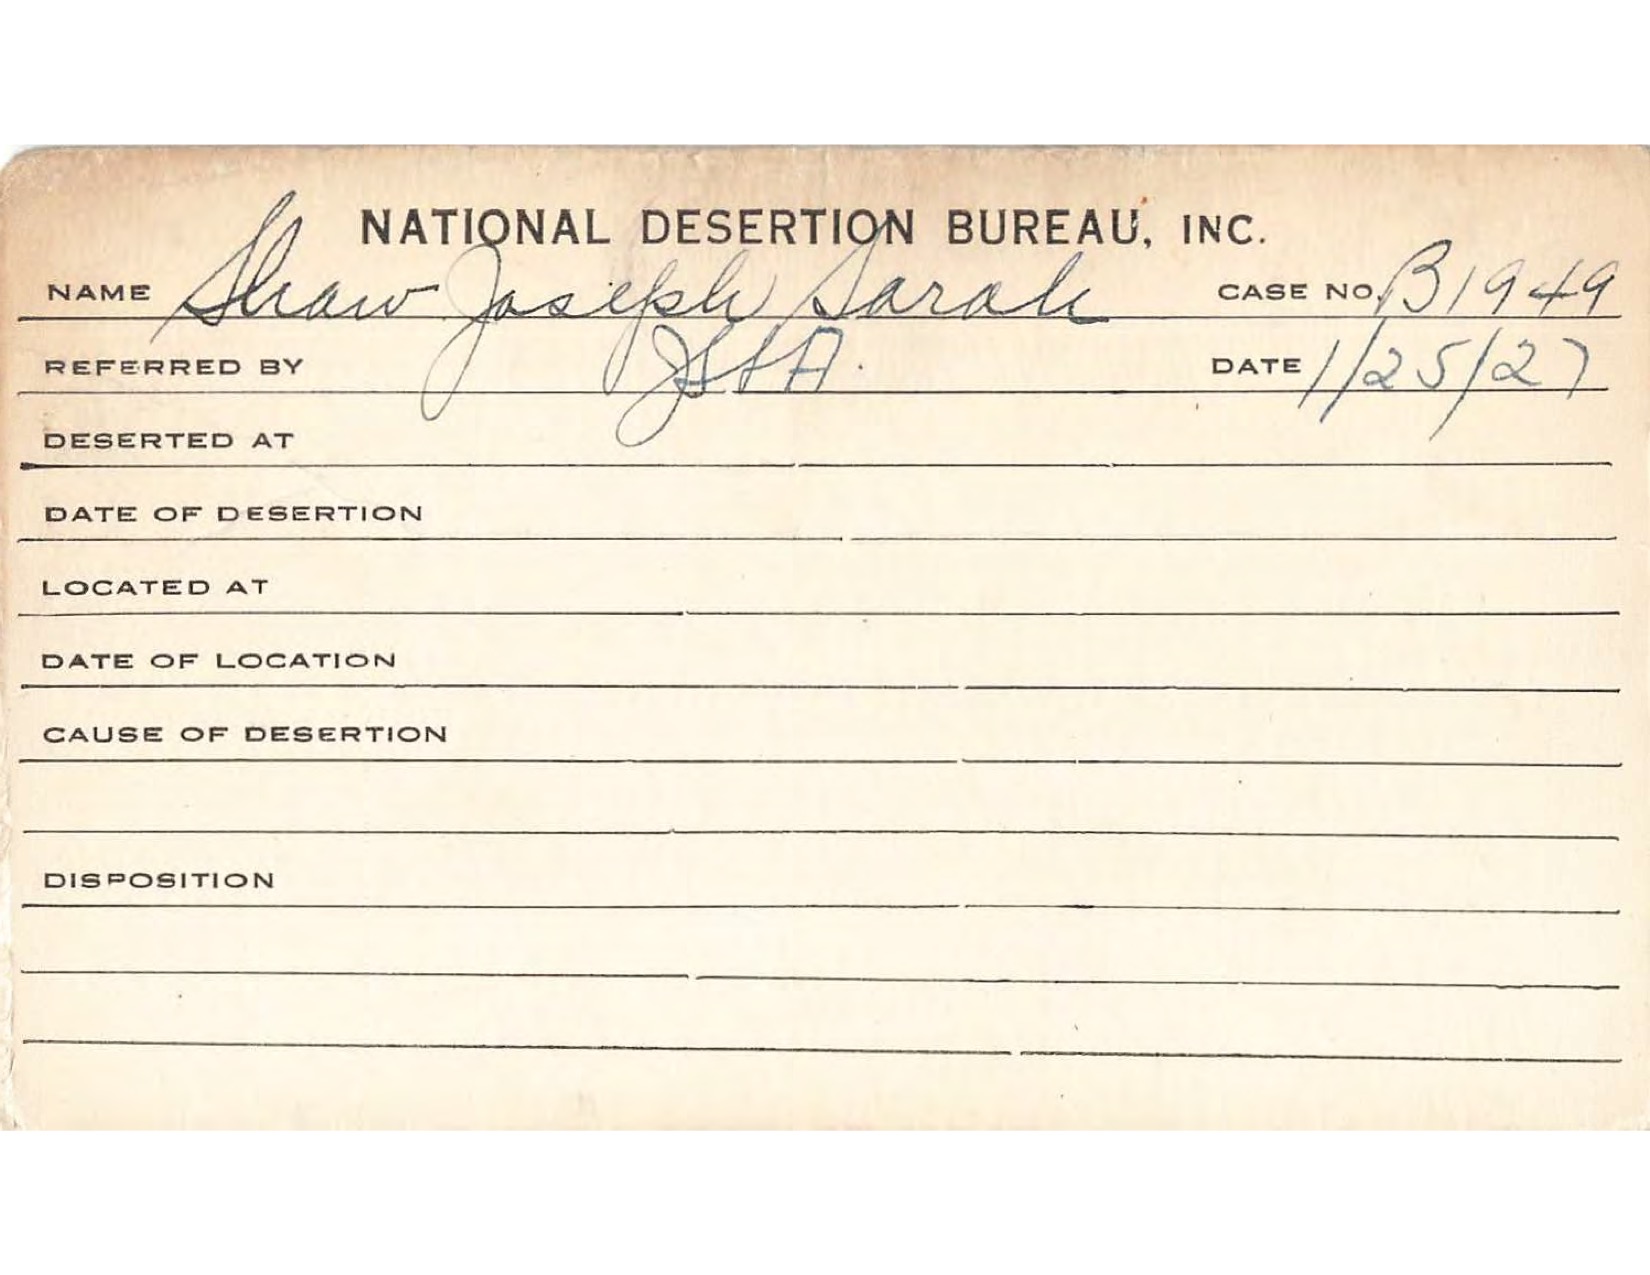 NATIONAL DESERTION BUREAU, INC.
NAME Shaw Joseph Sarah CASE NO. B1949
REFERRED BY JSSA. DATE 1/25/27
DESERTED AT
DATE OF DESERTION
LOCATED AT
DATE OF LOCATION
CAUSE OF DESERTION
DISPOSITION